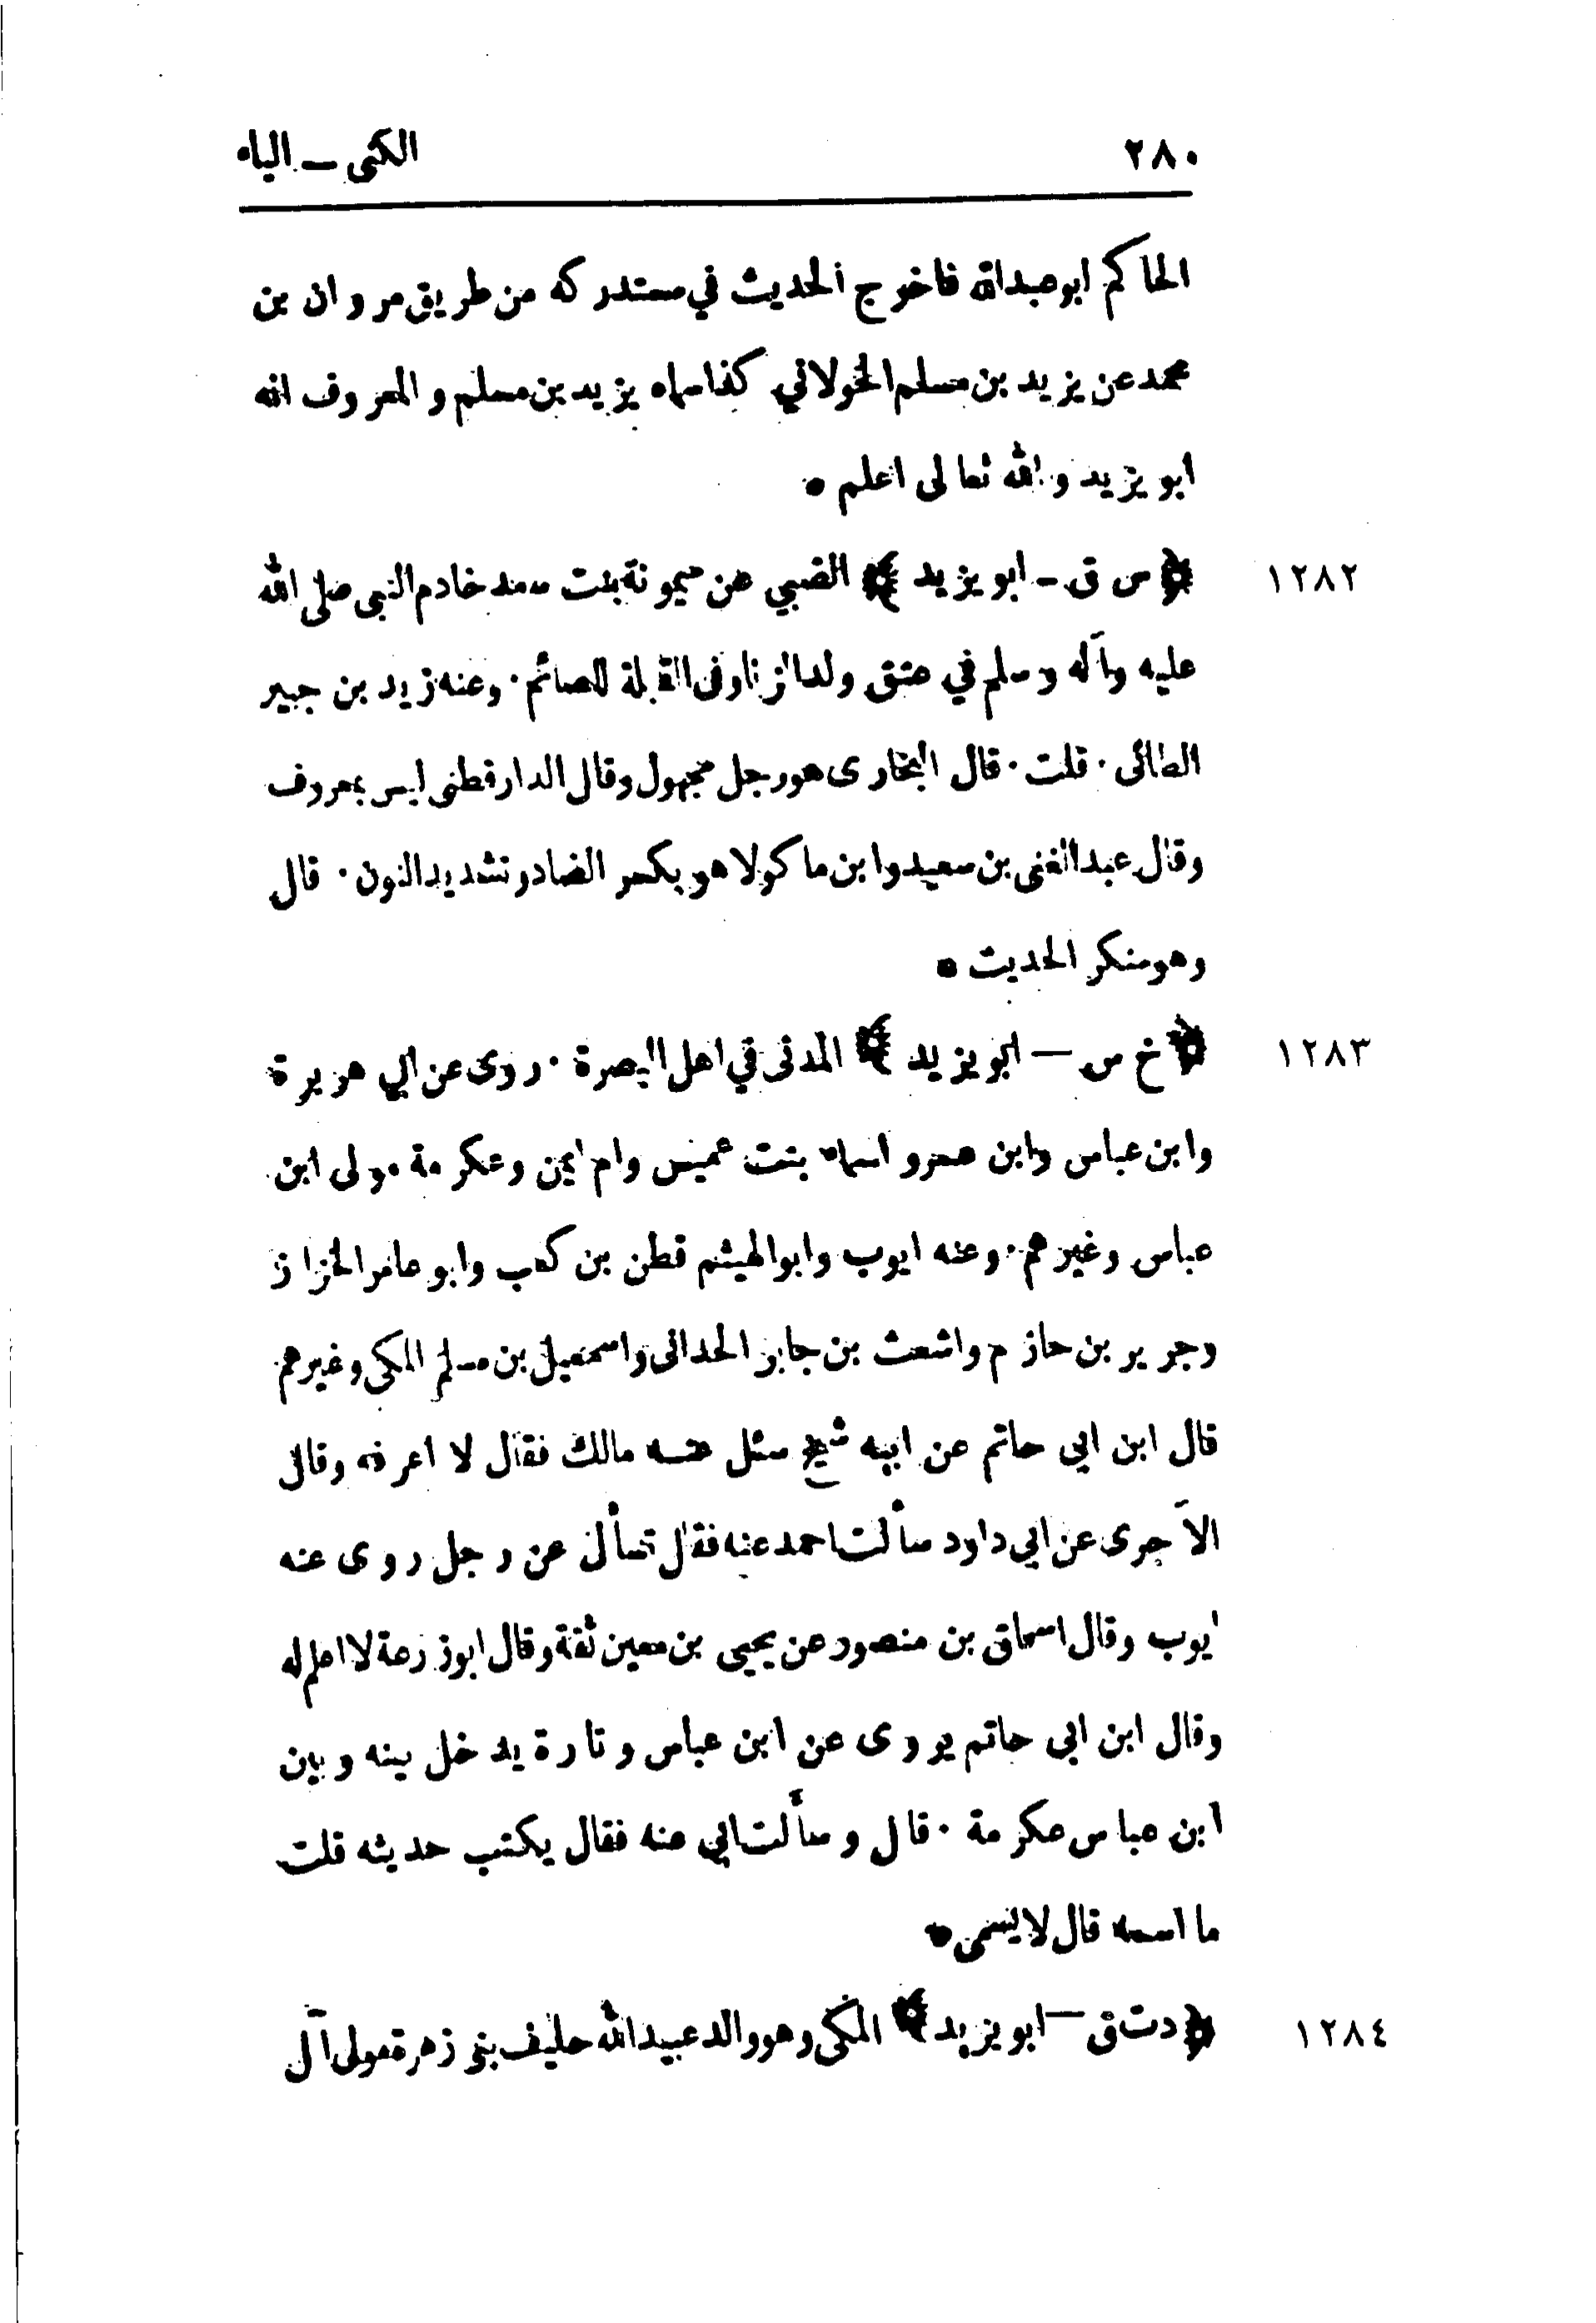 ٢٨٠ الكنى ــ الياء
الحاكم ابو عبدالله فاخرج الحديث في مستدركه من طريق مروان بن
محمد عن يزيد بن مسلم الخولاني كذا سماه يزيد بن مسلم والمعروف انه
ابو يزيد والله تعالى اعلم ●
١٢٨٢ ﴿ س ق ــ ابو يزيد ﴾ الضبي عن ميمونة بنت سعد خادم النبي صلى الله
عليه وآله وسلم في عتق ولد الزنا وفى القبلة للصائم · وعنه زيد بن جبير
الطائى · قلت · قال البخارى هو رجل مجهول وقال الدارقطنى ليس بمعروف
وقال عبد الغنى بن سعيد وابن ماكولا هو بكسر الضاد وتشديد النون · قال
وهو منكر الحديث ●
١٢٨٣ ﴿ خ س ــ ابو يزيد ﴾ المدنى في اهل البصرة · روى عن ابي هريرة
وابن عباس وابن عمر و اسماء بنت عميس وام ايمن وعكرمة مولى ابن
عباس وغيرهم · وعنه ايوب وابو الهيثم قطن بن كعب وابو عامر الخزاز
وجرير بن حازم واشعث بن جابر الحدانى واسمعيل بن مسلم المكى وغيرهم
قال ابن ابي حاتم عن ابيه شيخ سئل عنه مالك فقال لا اعرفه وقال
الآجرى عن ابي داود سألت احمد عنه فقال تسأل عن رجل روى عنه
ايوب وقال اسحاق بن منصور عن يحيى بن معين ثقة وقال ابو زرعة لا اعلم له
وقال ابن ابي حاتم يروى عن ابن عباس وتارة يدخل بينه وبين
ابن عباس عكرمة · قال وسألت ابي عنه فقال يكتب حديثه قلت
ما اسمه قال لا يسمى ●
١٢٨٤ ﴿ د ت ق ــ ابو يزيد ﴾ المكى وهو والد عبيد الله حليف بنى زهرة مولى آل